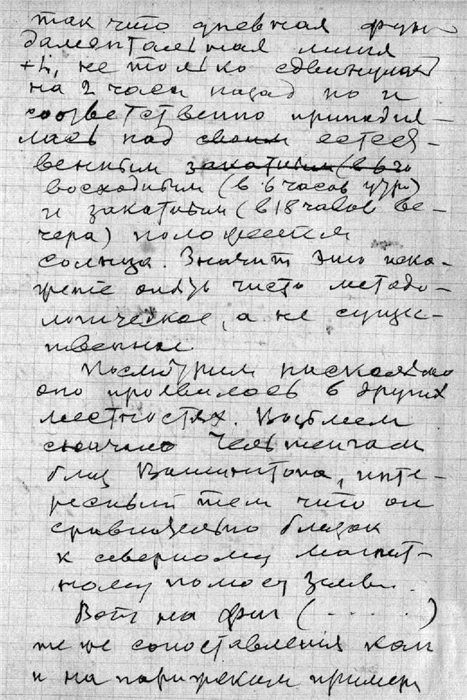 так что дневная фун
даментальная линия
+L, не только сдвинулась
на 2 часа назад но и
соответственно приподня-
лась над своим естест-
венным закатным (в 6 ч
восходным (в 6 часов утра)
и закатным (в 18 часов ве-
чера) положеста
солнца. Значит это иска-
жение опять чисто методо-
логическое, а не суще-
ственное
Посмотрим насколько
оно проявилось в других
местностях. Возьмем
сначала Чельтенгам
близ Вашингтона, инте-
ресный тем что он
сравнительно близок
к северному магнит-
ному полюсу Земли.
Вот на фиг (. . . . .)
те же сопоставления как
и на парижском примере